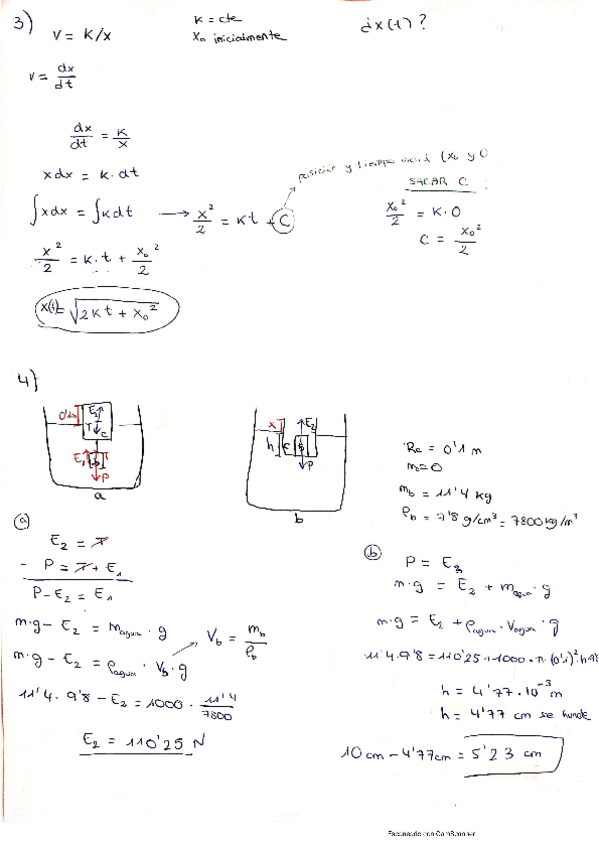 3) V = K/x K = cte ¿x(t)?
x₀ inicialmente
v = dx/dt
dx/dt = K/x
posición y tiempo inicial (x₀ y 0
x dx = K · dt
SACAR C
∫x dx = ∫K dt → x²/2 = Kt + C
x₀²/2 = K·0
C = x₀²/2
x²/2 = K·t + x₀²/2
x(t) = √2Kt + x₀²
4)
0'1m E₂ T C E₁ b T P
a
x h C b E₂ P
b
Rc = 0'1 m
mc = 0
m_b = 11'4 kg
ρ_b = 7'8 g/cm³ = 7800 kg/m³
a
E₂ = T
- P = T + E₁
P - E₂ = E₁
m·g - E₂ = m_agua · g
V_b = m_b/ρ_b
m·g - E₂ = ρ_agua · V_b · g
11'4 · 9'8 - E₂ = 1000 · 11'4/7800
E₂ = 110'25 N
b
P = E₂
m·g = E₂ + m_agua · g
m·g = E₂ + ρ_agua · V_agua · g
11'4 · 9'8 = 110'25 + 1000 · π · (0'1)² · h · 9'8
h = 4'77 · 10⁻³ m
h = 4'77 cm se hunde
10 cm - 4'77 cm = 5'23 cm
Escaneado con CamScanner